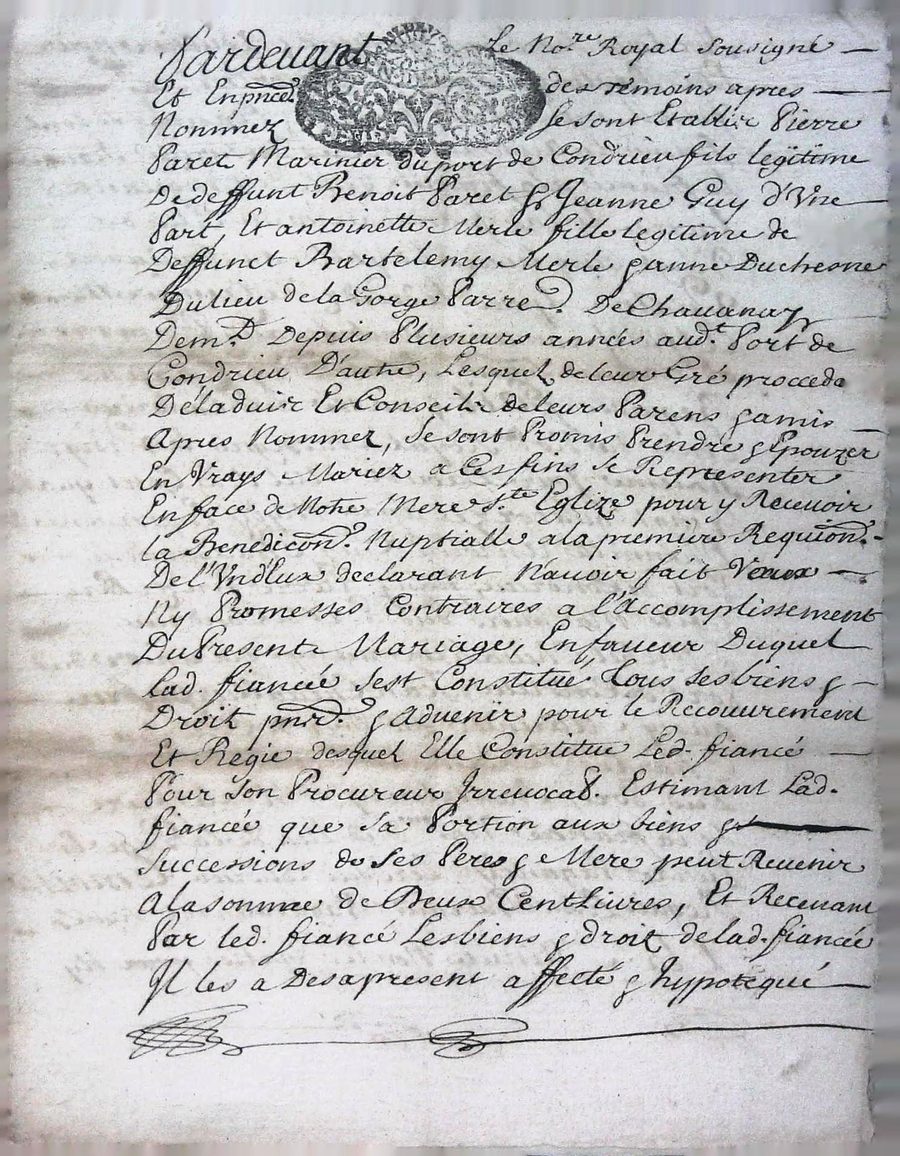 Pardevant Le No.re Royal Sousigné
Et En pnce. des temoins apres
Nommez Se sont Etablir Pierre
Paret Marinier du port de Condrieu fils legitime
De deffunt Benoit Paret & Jeanne Guy d'Vne
Part, Et antoinette Merle fille legitime de
Deffunct Bartelemy Merle & anne Duchesne
Du lieu de la Gorge Parre. De Chauanay
Dem.t Depuis Plusieurs années aud.t Port de
Condrieu D'autre, Lesquel de leur Gré procede
De laduis Et Conseil de leurs Parens & amis
Apres Nommez, Se sont Promis Prendre & Epouzer
En Vrays Mariez a Ces fins Se Representer
En face de Notre Mere S.te Eglize pour y Receuoir
la Benedicon. Nuptialle a la premiere Requion.
De l'Vnd'Eux declarant N'auoir fait Veaux
Ny Promesses Contraires a l'Accomplissement
Du Present Mariage, En faueur Duquel
Lad. fiancée sest Constitué Tous ses biens &
Droit pnts. & Aduenir pour le Recouurement
Et Regie desquel Elle Constitue Led. fiancé
Pour Son Procureur Irreuocab. Estimant Lad.
fiancée que sa Portion aux biens &
successions de Ses Peres & Mere peut Reuenir
A la somme de Deux Cent Liures, Et Receuant
Par led. fiancé Les biens & droit de lad. fiancée
Il les a Des apresent affecté & hypotequé